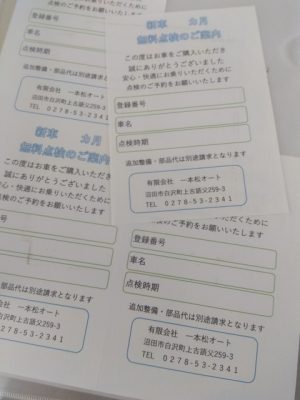 点検のご
この度はお車をご購入い
誠にありがとうございました
安心・快適にお乗りいただくために
のご予約をお願いいたします
登録番号
車名
点検時期
追加整備・部品代は別途請求となり
有限会社 一本松オート
沼田市白沢町上古語父259-3
TEL 0278-53-2341
新車 カ月
無料点検のご案内
この度はお車をご購入いただき
誠にありがとうございました
安心・快適にお乗りいただくために
ご予約をお願いいたします
登録番号
車名
点検時期
追加整備・部品代は別途請求となります
有限会社 一本松オート
沼田市白沢町上古語父259-3
TEL 0278-53-2341
新車 カ月
無料点検のご案内
この度はお車をご購入いただき
誠にありがとうございました
安心・快適にお乗りいただくために
のご予約をお願いいたします
番号
時期
整備・部品代は別途請求となります
有限会社 一本松オート
沼田市白沢町上古語父259-3
TEL 0278-53-2341
いただくために
いいたします
登録番号
車名
点検時期
追加整備・部品代は別途請求となります
有限会社 一本松オート
沼田市白沢町上古語父259-3
TEL 0278-53-2341